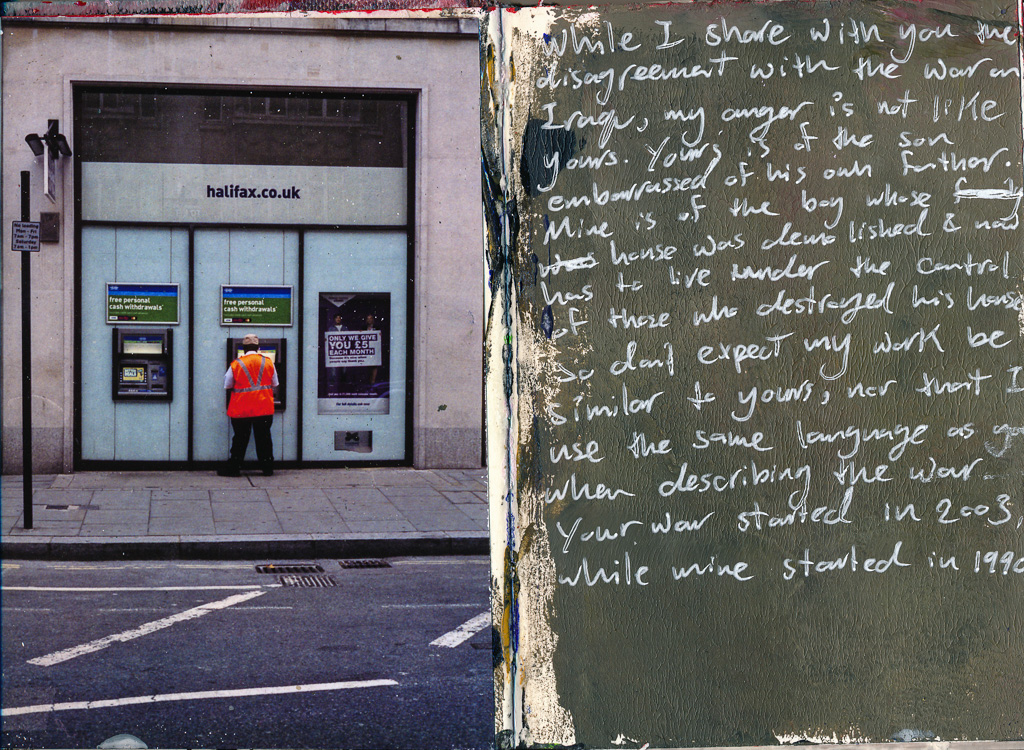 halifax.co.uk
No loading
Mon - Fri
7am - 7pm
Saturday
7am - 1pm
free personal
cash withdrawals
free personal
cash withdrawals
ONLY WE GIVE
YOU £5
EACH MONTH
While I share with you the
disagreement with the war on
Iraqu, my anger is not like
yours. Yours is of the son
embarrassed of his own farther.
Mine is of the boy whose
house was demolished & now
has to live under the control
of those who destroyed his house
So don't expect my work be
similar to yours, nor that I
use the same language as
when describing the war.
Your war started in 2003,
while mine started in 1990